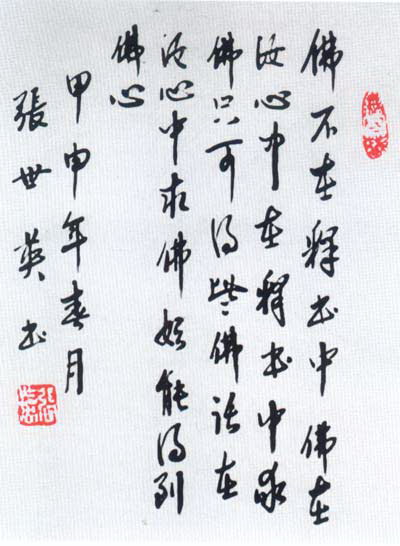 佛不在释书中佛在
汝心中在释书中求
佛只可得些佛话在
汝心中求佛始能得到
佛心
甲申年春月
張世英书